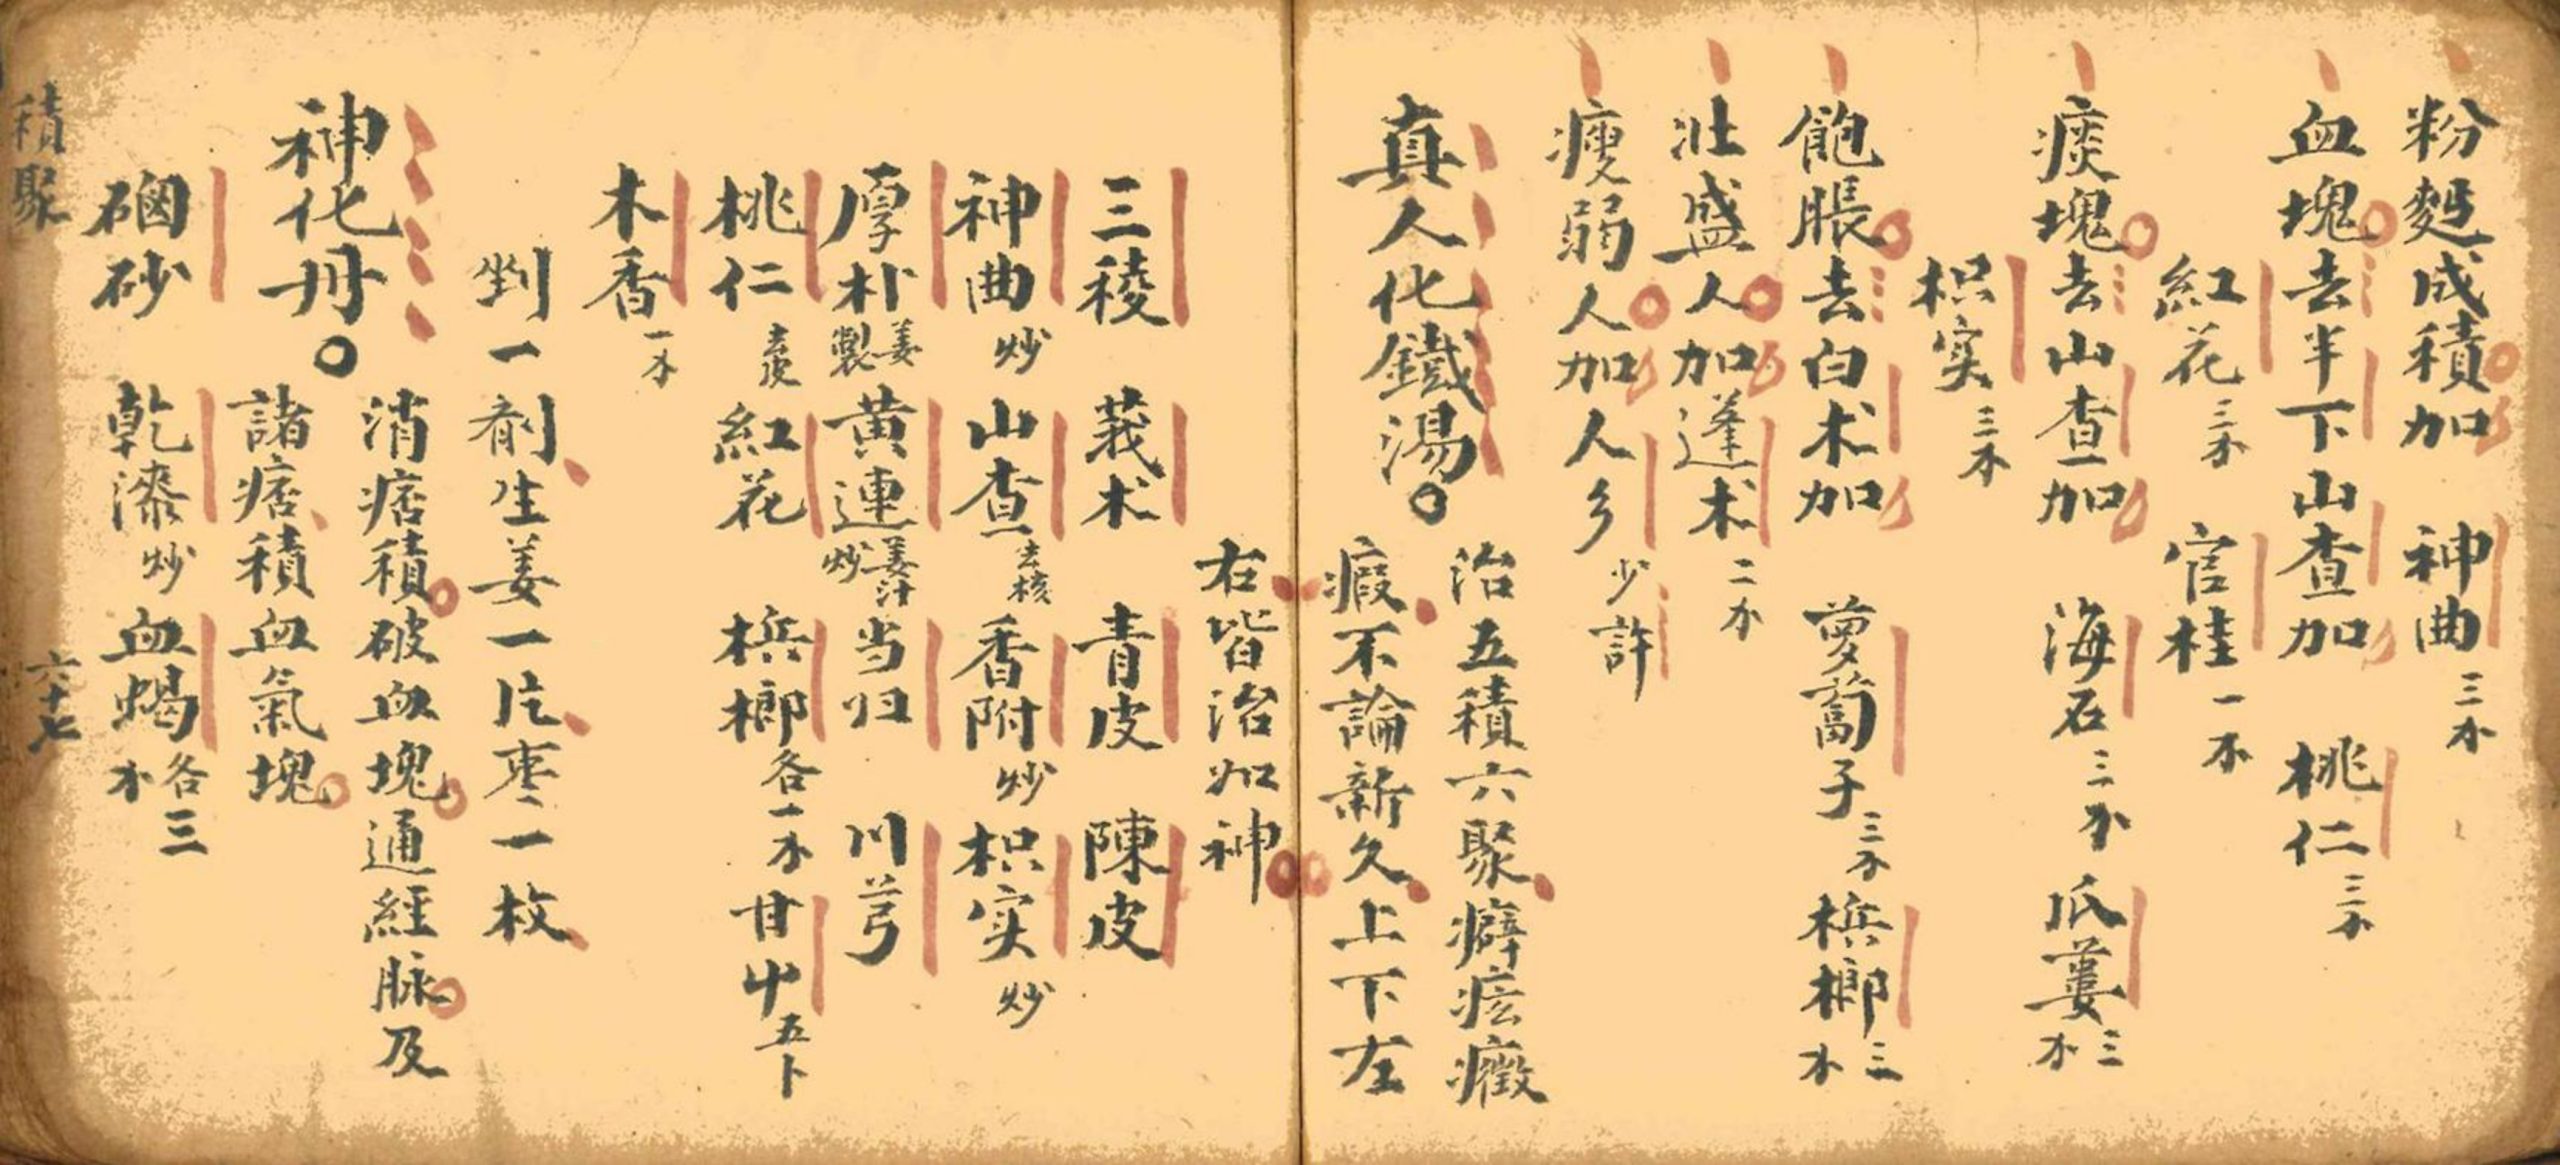 粉麪成積加 神曲三分
血塊去半下山查加 桃仁三分
紅花三分 官桂一分
痰塊去山查加 海石三分 瓜蔞三分
枳实三分
飽脹去白术加 蘿蔔子三分 梹榔三分
壮盛人加蓬术二分
瘦弱人加人乡少許
真人化鐵湯 治五積六聚癖痃癥
瘕不論新久上下左
右皆治如神
三稜 莪术 青皮 陳皮
神曲炒 山查去核 香附炒 枳实炒
厚朴姜製 黄連姜汁炒 当归 川芎
桃仁去皮 紅花 梹榔各一分 甘屮五卜
木香一分
剉一剤生姜一片枣一枚
神化丹 消痞積破血塊通經脉及
諸痞積血氣塊
硇砂 乾漆炒 血蝎各三分
積聚 六十七